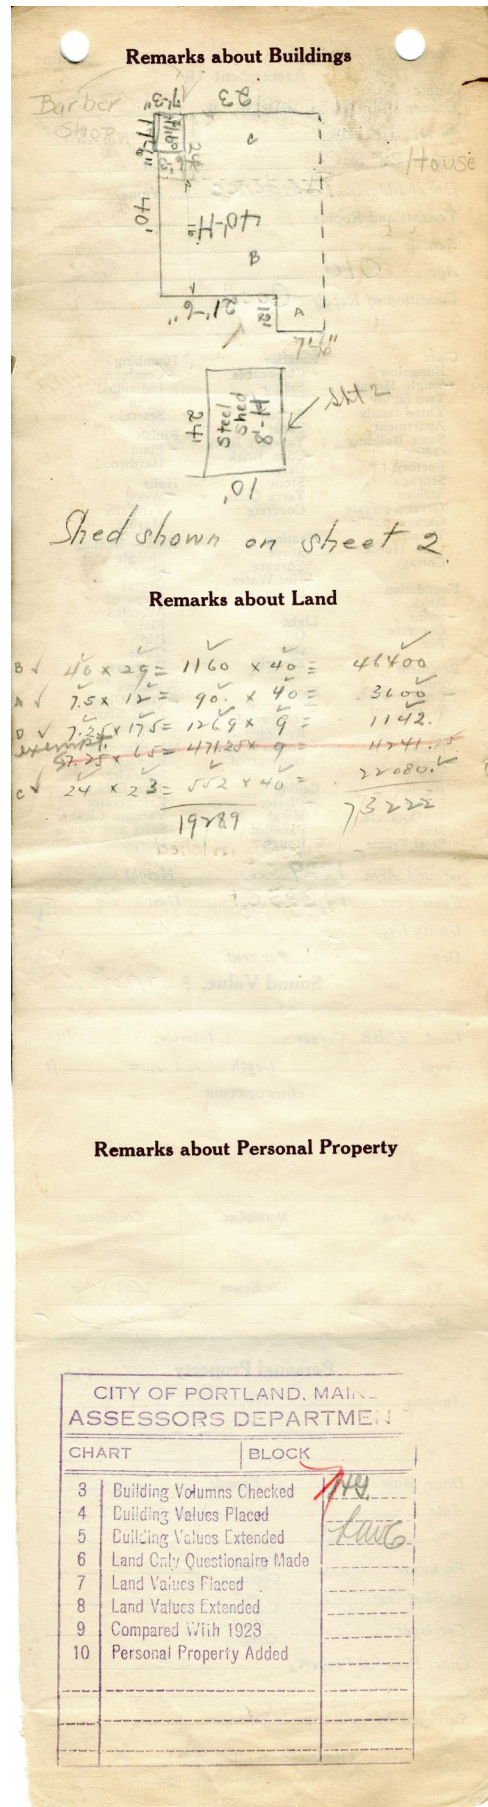 Remarks about Buildings
Barber Shop
7'-3"
23
17'-6"
24
C
House
40'
40'-H
B
21'-6"
12'
A
7'-6"
24
Steel Shed 8'-H
Sht 2
10'
Shed shown on sheet 2
Remarks about Land
B √ 40 x 29 = 1160 x 40 = 46400
A √ 7.5 x 12 = 90. x 40 = 3600
D √ 7.25 x 17.5 = 126.9 x 9 = 1142.
exempt.
C √ 24 x 23 = 552 x 40 = 22080.
19289 73222
Remarks about Personal Property
CITY OF PORTLAND, MAIN
ASSESSORS DEPARTMEN
CHART BLOCK
3 Building Volumns Checked
4 Building Values Placed
5 Building Values Extended
6 Land Only Questionaire Made
7 Land Values Placed
8 Land Values Extended
9 Compared With 1923
10 Personal Property Added